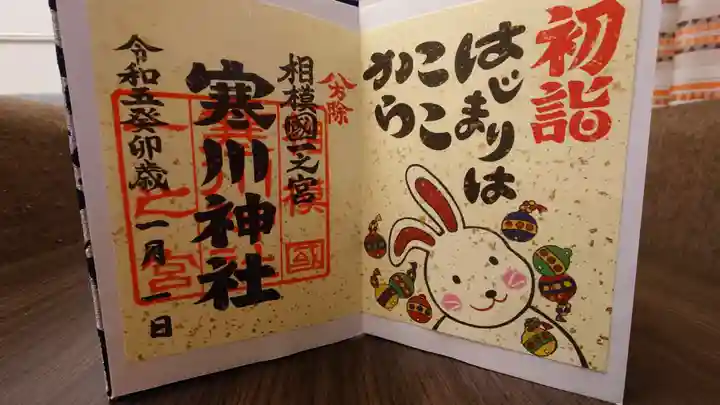 初詣
はじまりは
ここ
から
八方除
相模國一之宮
寒川神社
令和五癸卯歳
一月一日